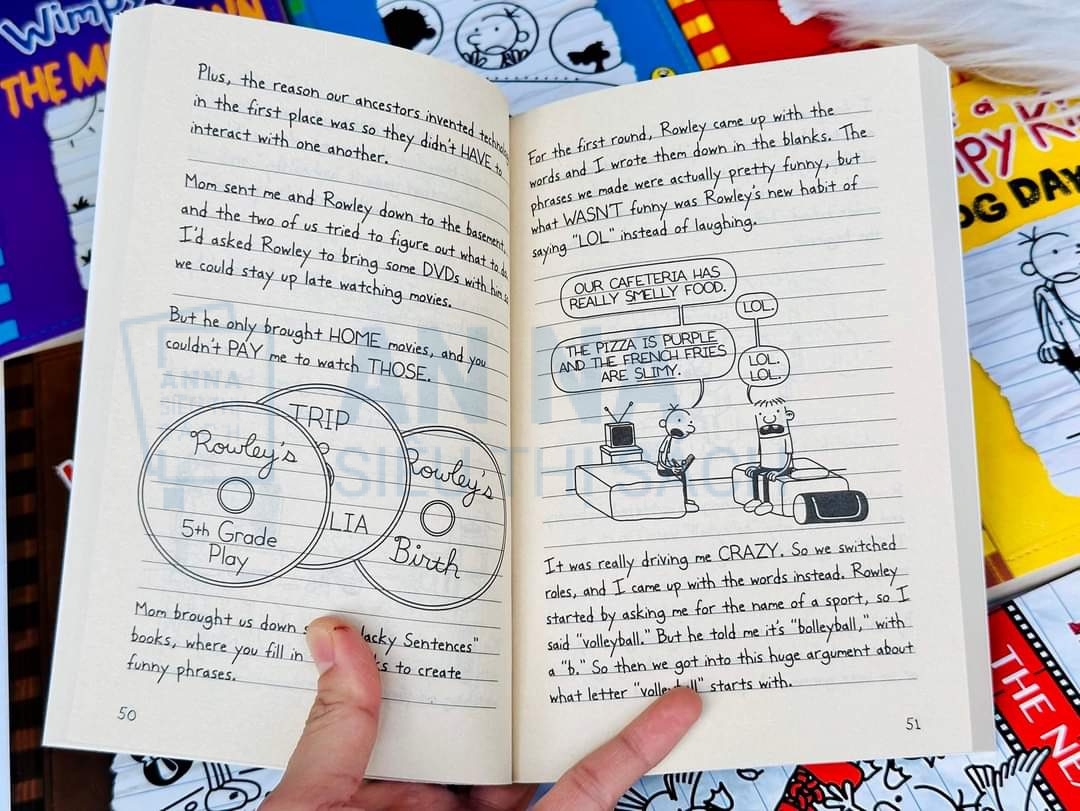 Wimpy
THE M
Plus, the reason our ancestors invented
in the first place was so they didn't HAVE to
interact with one another.
Mom sent me and Rowley down to the basement,
and the two of us tried to figure out what to do.
I'd asked Rowley to bring some DVDs with him so
we could stay up late watching movies.
But he only brought HOME movies, and you
couldn't PAY me to watch THOSE.
Rowley's
5th Grade
Play
TRIP
LIA
Rowley's
Birth
Mom brought us down Sentences"
books, where you fill in to create
funny phrases.
50
For the first round, Rowley came up with the
words and I wrote them down in the blanks. The
phrases we made were actually pretty funny, but
what WASN'T funny was Rowley's new habit of
saying "LOL" instead of laughing.
OUR CAFETERIA HAS
REALLY SMELLY FOOD.
LOL.
THE PIZZA IS PURPLE
AND THE FRENCH FRIES
ARE SLIMY.
LOL.
LOL.
It was really driving me CRAZY. So we switched
roles, and I came up with the words instead. Rowley
started by asking me for the name of a sport, so I
said "volleyball." But he told me it's "bolleyball," with
a "b." So then we got into this huge argument about
what letter "volleyball" starts with.
51
ANNA
AN NA
SIÊU THỊ SÁCH
a
py Ki
OG DAY
THE NE